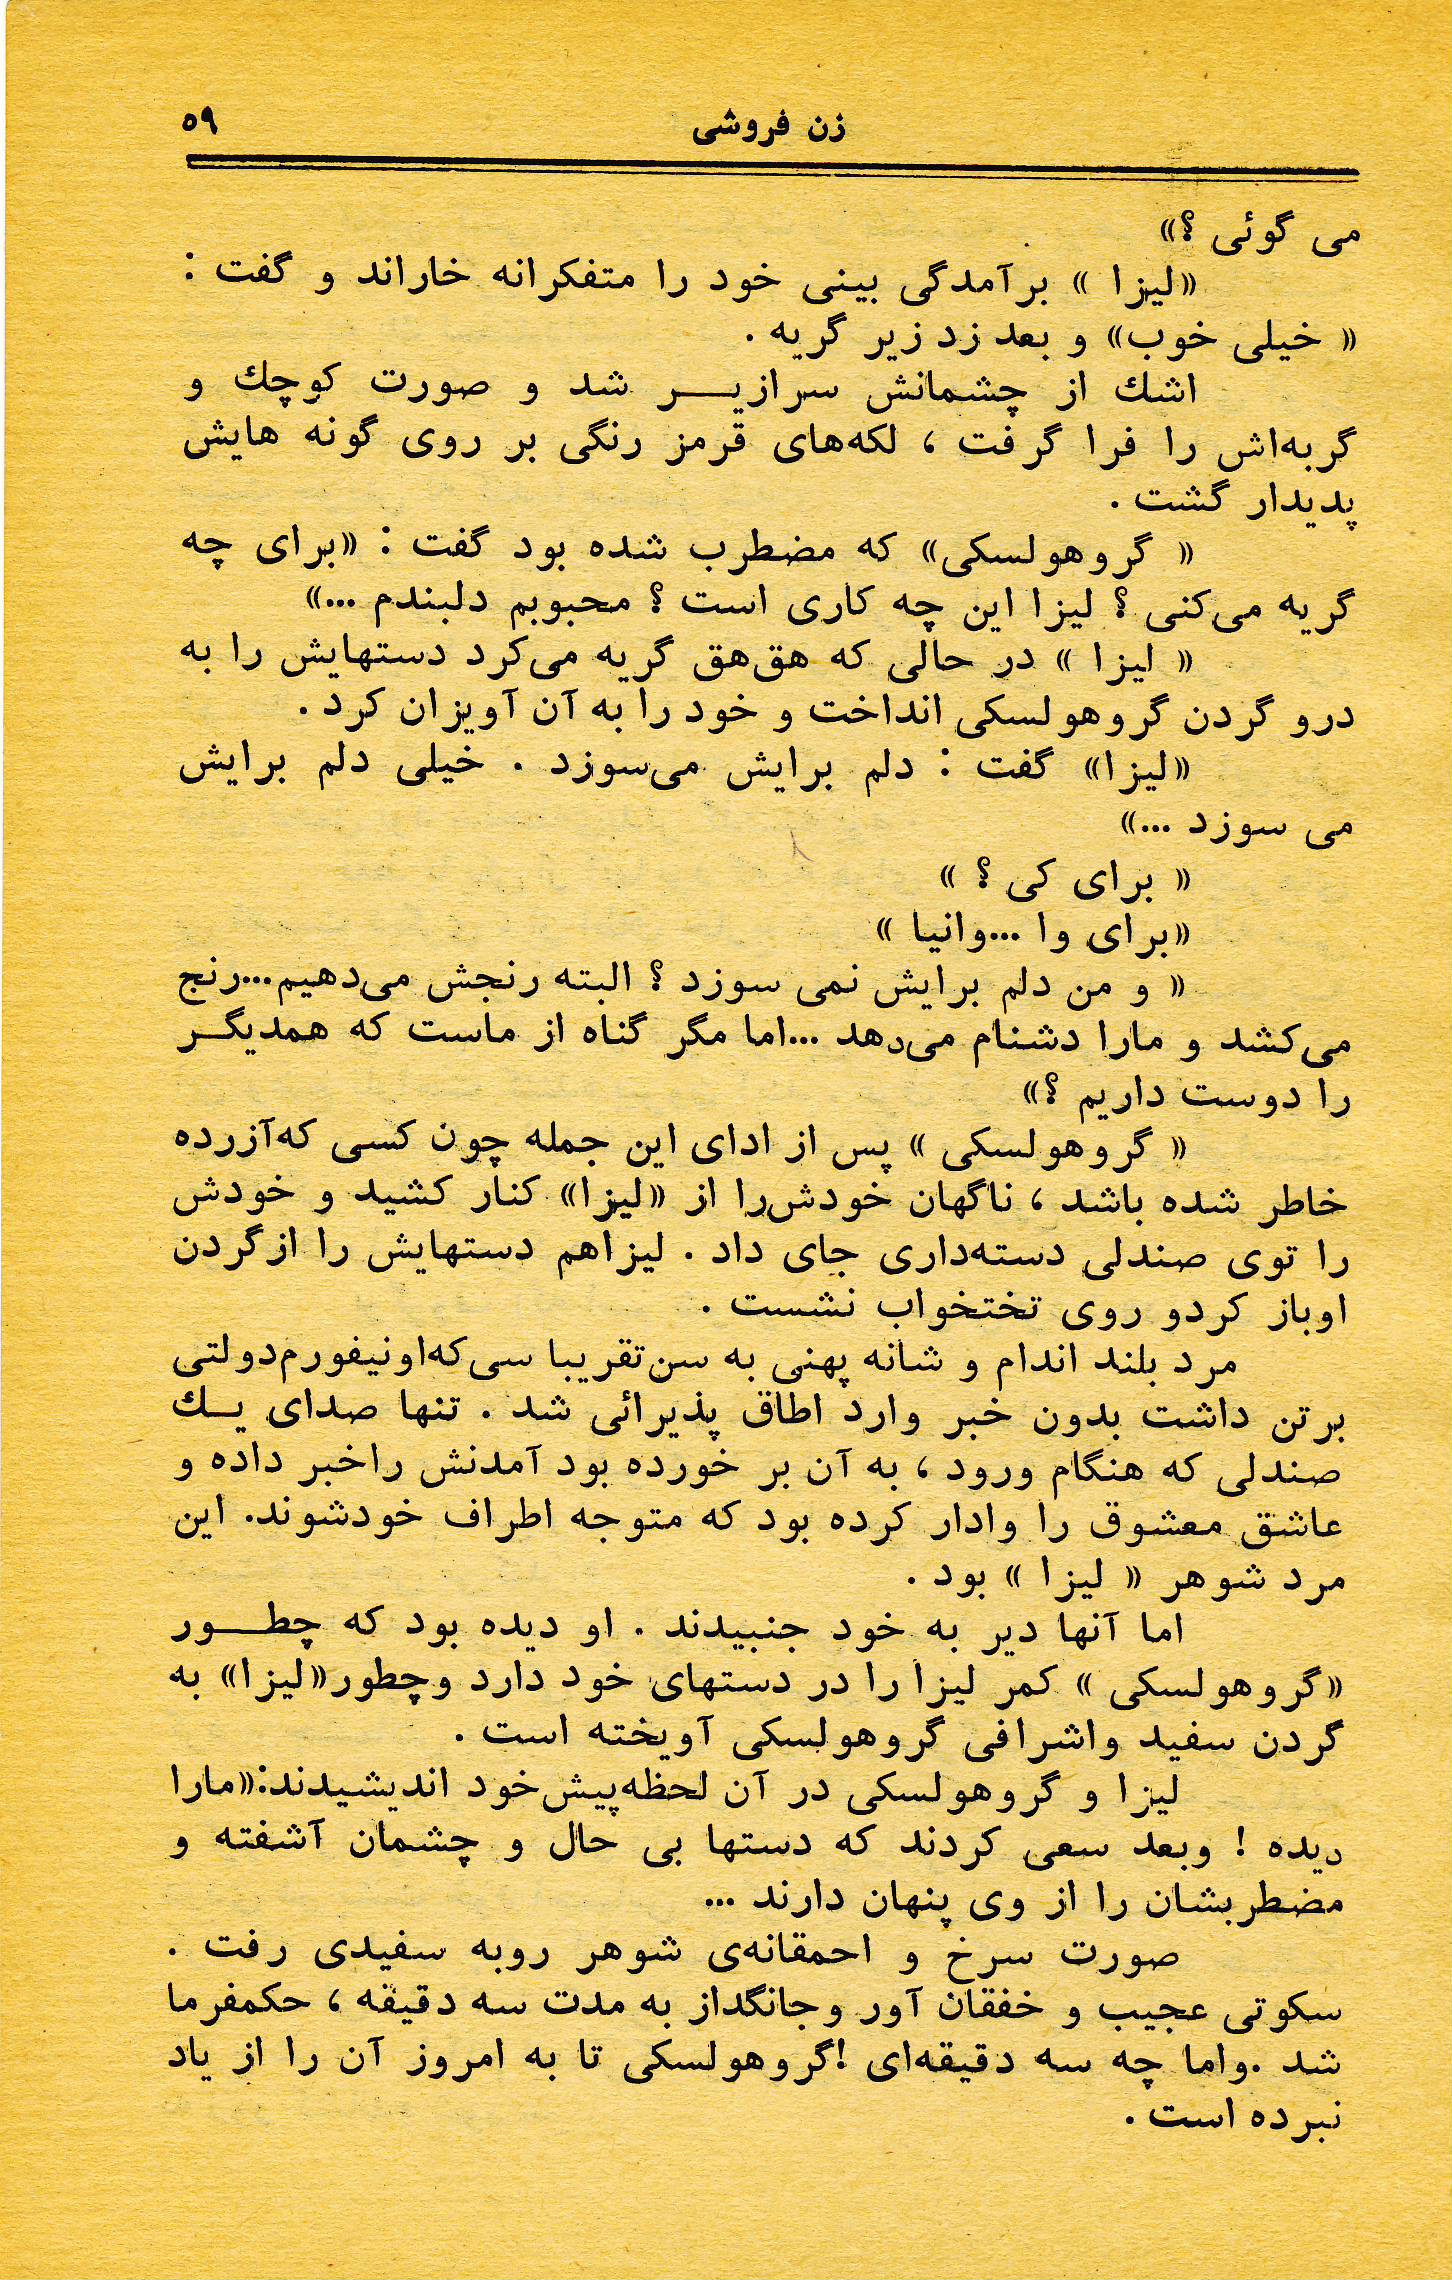 زن فروشی ۵۹
می گوئی ؟»
«لیزا » برآمدگی بینی خود را متفکرانه خاراند و گفت :
« خیلی خوب» و بعد زد زیر گریه .
اشك از چشمانش سرازیـــر شد و صورت کوچك و
گربه‌اش را فرا گرفت ، لکه‌های قرمز رنگی بر روی گونه هایش
پدیدار گشت .
« گروهولسکی» که مضطرب شده بود گفت : «برای چه
گریه می‌کنی ؟ لیزا این چه کاری است ؟ محبوبم دلبندم ...»
« لیزا » در حالی که هق‌هق گریه می‌کرد دستهایش را به
درو گردن گروهولسکی انداخت و خود را به آن آویزان کرد .
«لیزا» گفت : دلم برایش می‌سوزد . خیلی دلم برایش
می سوزد ...»
« برای کی ؟ »
«برای وا ...وانیا »
« و من دلم برایش نمی سوزد ؟ البته رنجش می‌دهیم...رنج
می‌کشد و مارا دشنام می‌دهد ...اما مگر گناه از ماست که همدیگـر
را دوست داریم ؟»
« گروهولسکی » پس از ادای این جمله چون کسی که‌آزرده
خاطر شده باشد ، ناگهان خودش‌را از «لیزا» کنار کشید و خودش
را توی صندلی دسته‌داری جای داد . لیزاهم دستهایش را ازگردن
اوباز کردو روی تختخواب نشست .
مرد بلند اندام و شانه پهنی به سن‌تقریبا سی‌که‌اونیفورم‌دولتی
برتن داشت بدون خبر وارد اطاق پذیرائی شد . تنها صدای یـك
صندلی که هنگام ورود ، به آن بر خورده بود آمدنش راخبر داده و
عاشق معشوق را وادار کرده بود که متوجه اطراف خودشوند. این
مرد شوهر « لیزا » بود .
اما آنها دیر به خود جنبیدند . او دیده بود که چطـــور
«گروهولسکی » کمر لیزا را در دستهای خود دارد وچطور«لیزا» به
گردن سفید واشرافی گروهولسکی آویخته است .
لیزا و گروهولسکی در آن لحظه‌پیش‌خود اندیشیدند:«مارا
دیده ! وبعد سعی کردند که دستها بی حال و چشمان آشفته و
مضطربشان را از وی پنهان دارند ...
صورت سرخ و احمقانه‌ی شوهر روبه سفیدی رفت .
سکوتی عجیب و خفقان آور وجانگداز به مدت سه دقیقه ، حکمفرما
شد .واما چه سه دقیقه‌ای !گروهولسکی تا به امروز آن را از یاد
نبرده است .